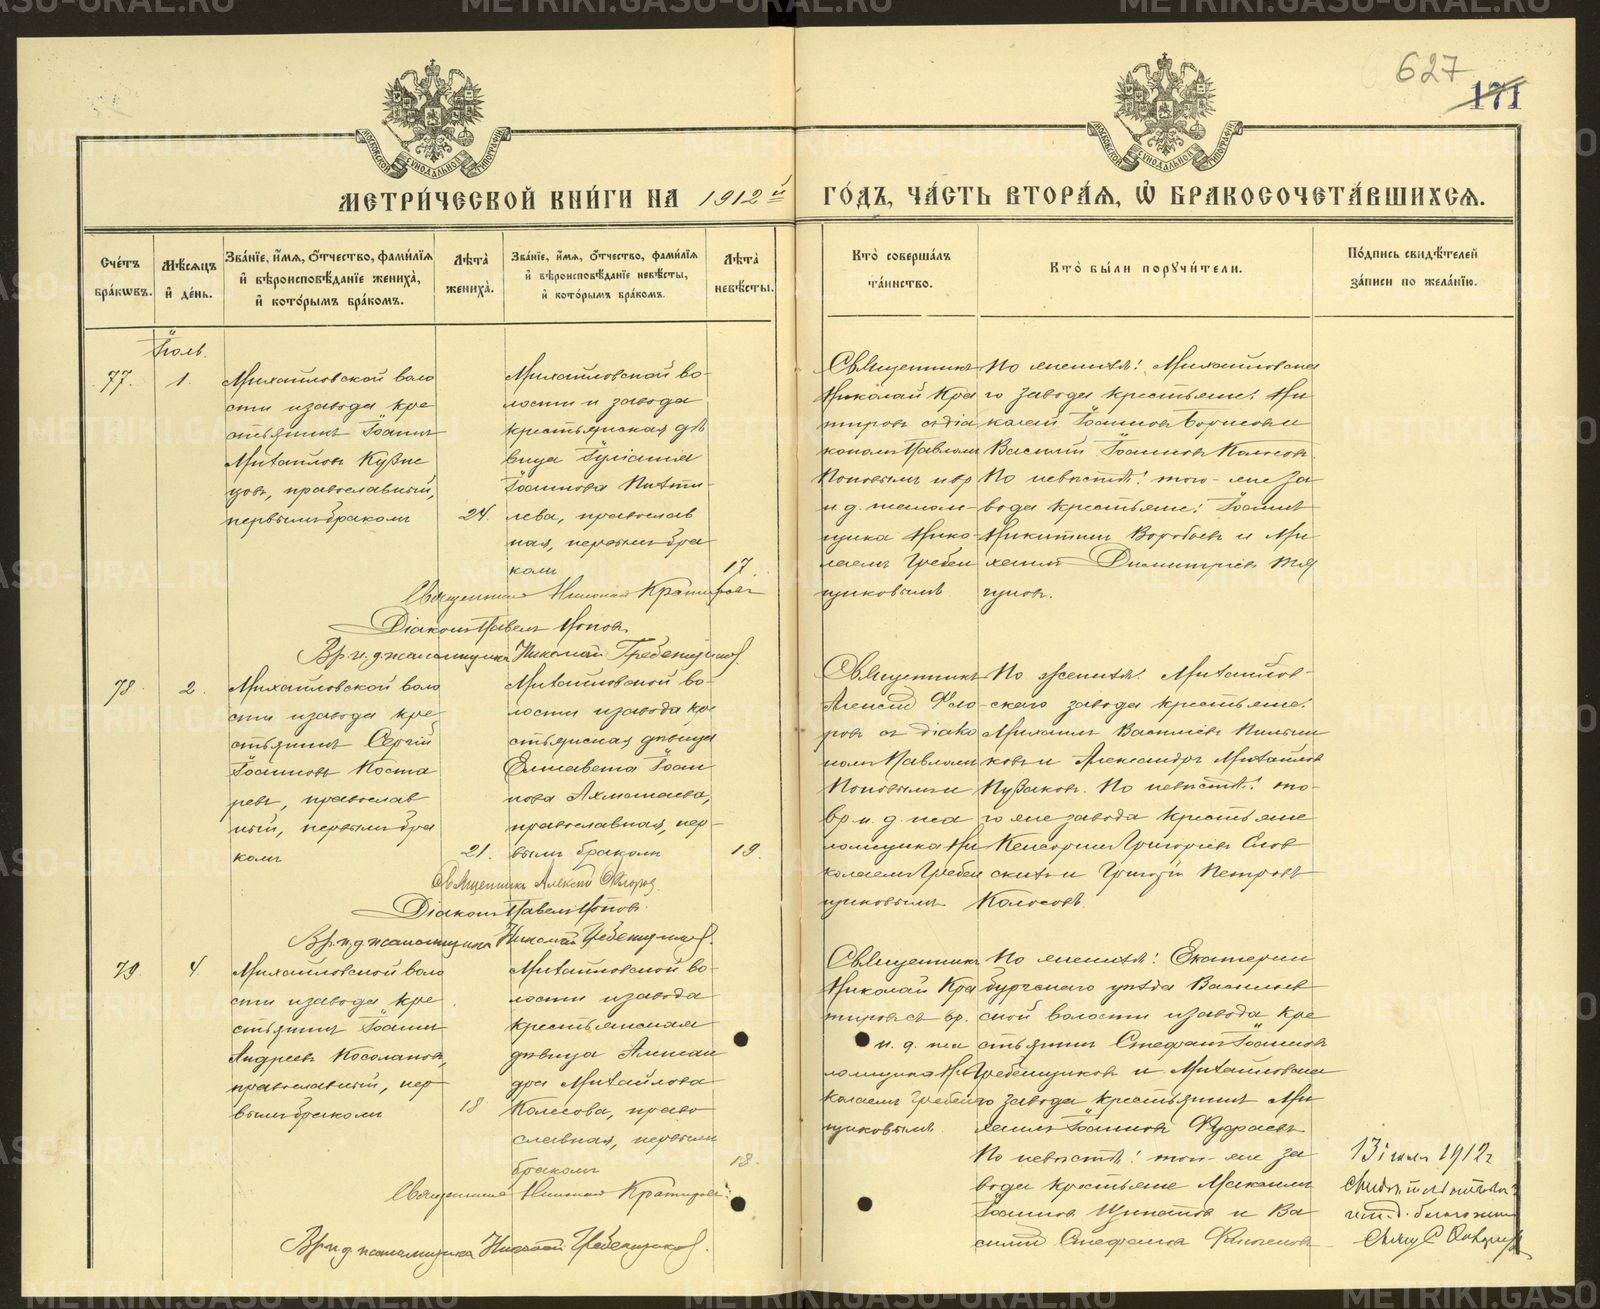 627
171
МЕТРИ́ЧЕСКОЙ КНИ́ГИ НА 1912й ГО́ДЪ, ЧА́СТЬ ВТОРА́Я, Ѡ БРАКОСОЧЕТА́ВШИХСЯ.
Сче́тъ бра́кѡвъ.
Мѣ́сяцъ и де́нь.
Зва́нїе, и́мя, о́тчество, фами́лїя и вѣроисповѣ́данїе жениха̀, и кото́рымъ бра́комъ.
Лѣта̀ жениха̀.
Зва́нїе, и́мя, о́тчество, фами́лїя и вѣроисповѣ́данїе невѣ́сты, и кото́рымъ бра́комъ.
Лѣта̀ невѣ́сты.
Кто̀ соверша́лъ та́инство.
Кто̀ бы́ли поручи́тели.
По́дпись свидѣ́телей за́писи по жела́нїю.
Іюль.
77.
1.
Михайловской воло
сти и завода кре
стьянинъ Іоаннъ
Михаиловъ Кузне
цовъ, православный,
первымъ бракомъ
24.
Михайловской во-
лости и завода
крестьянская дѣ
вица Іуліания
Іоаннова
лева, православ
ная, первымъ бра
комъ
17
Священникъ
Николай Кра
тировъ съ діа
кономъ Павломъ
Поповымъ и вр
и. д. псалом-
щика Нико-
лаемъ Гребен
щиковымъ
По женихѣ: Михайловска
го завода крестьяне: Ни
колай Іоанновъ Борисовъ и
Василій Іоанновъ
По невѣстѣ: того-же за
вода крестьяне: Іоаннъ
Никитинъ Воробьевъ и Ми
хаилъ Димитріевъ Тя
гуновъ.
Священникъ Николай Кратировъ
Діаконъ Павелъ Поповъ
Вр. и. д. псаломщика Николай Гребенщиковъ.
78.
2.
Михайловской воло
сти и завода кре
стьянинъ Сергій
Іоанновъ Коста
ревъ, православ
ный, первымъ бра
комъ
21.
Михайловской во-
лости и завода кре
стьянская дѣвица
Елисавета Іоан
нова
православная, пер-
вымъ бракомъ
19.
Священникъ
Алексій Фло
ровъ съ діако
номъ Павломъ
Поповымъ и
вр. и. д. пса
ломщика Ни
колаемъ Гребен
щиковымъ
По женихѣ: Михайлов-
скаго завода крестьяне:
Михаилъ Василіевъ
ковъ и Александръ Михайловъ
Пузаковъ. По невѣстѣ: то-
го же завода крестьяне
Григоріевъ
и Григорій Петровъ
Колосовъ.
Священникъ Алексій Флоровъ
Діаконъ Павелъ Поповъ.
Вр. и. д. псаломщика Николай Гребенщиковъ.
79.
4.
Михайловской воло
сти и завода кре
стьянинъ Іоаннъ
Андреевъ Косолаповъ,
православный, пер
вымъ бракомъ
18
Михайловской во-
лости и завода
крестьянская
дѣвица Алексан
дра Михайлова
Колесова, право
славная, первымъ
бракомъ
18.
Священникъ
Николай Кра
тировъ съ вр.
и. д. пса
ломщика Ни
колаемъ Гребен
щиковымъ.
По женихѣ: Екатерин
бургскаго уѣзда Васильев
ской волости и завода кре
стьянинъ Стефанъ Іоанновъ
Гребенщиковъ и Михайловска
го завода крестьянинъ Ми
хаилъ Іоанновъ
По невѣстѣ: того-же за
вода крестьяне
Іоанновъ и Ва
силій Стефановъ
Священникъ Николай Кратировъ
Вр. и. д. псаломщика Николай Гребенщиковъ.
13 іюля 1912 г
METRIKI.GASO-URAL.RU